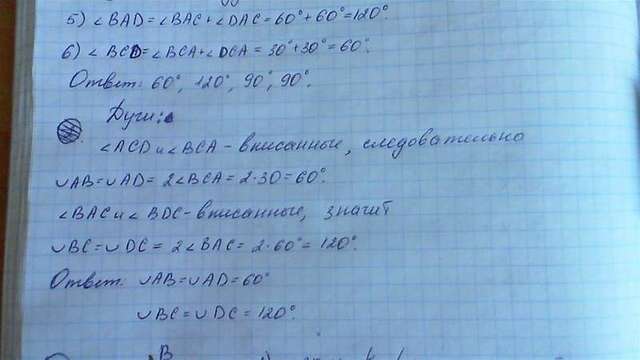 5) ∠BAD=∠BAC+∠DAC=60°+60°=120°.
6) ∠BCD=∠BCA+∠DCA=30°+30°=60°.
Ответ: 60°, 120°, 90°, 90°.
Дуги:
∠ACD и ∠BCA - вписанные, следовательно
∪AB=∪AD=2∠BCA=2·30=60°.
∠BAC и ∠BDC-вписанные, значит
∪BC=∪DC=2∠BAC=2·60°=120°.
Ответ: ∪AB=∪AD=60°
∪BC=∪DC=120°.
B